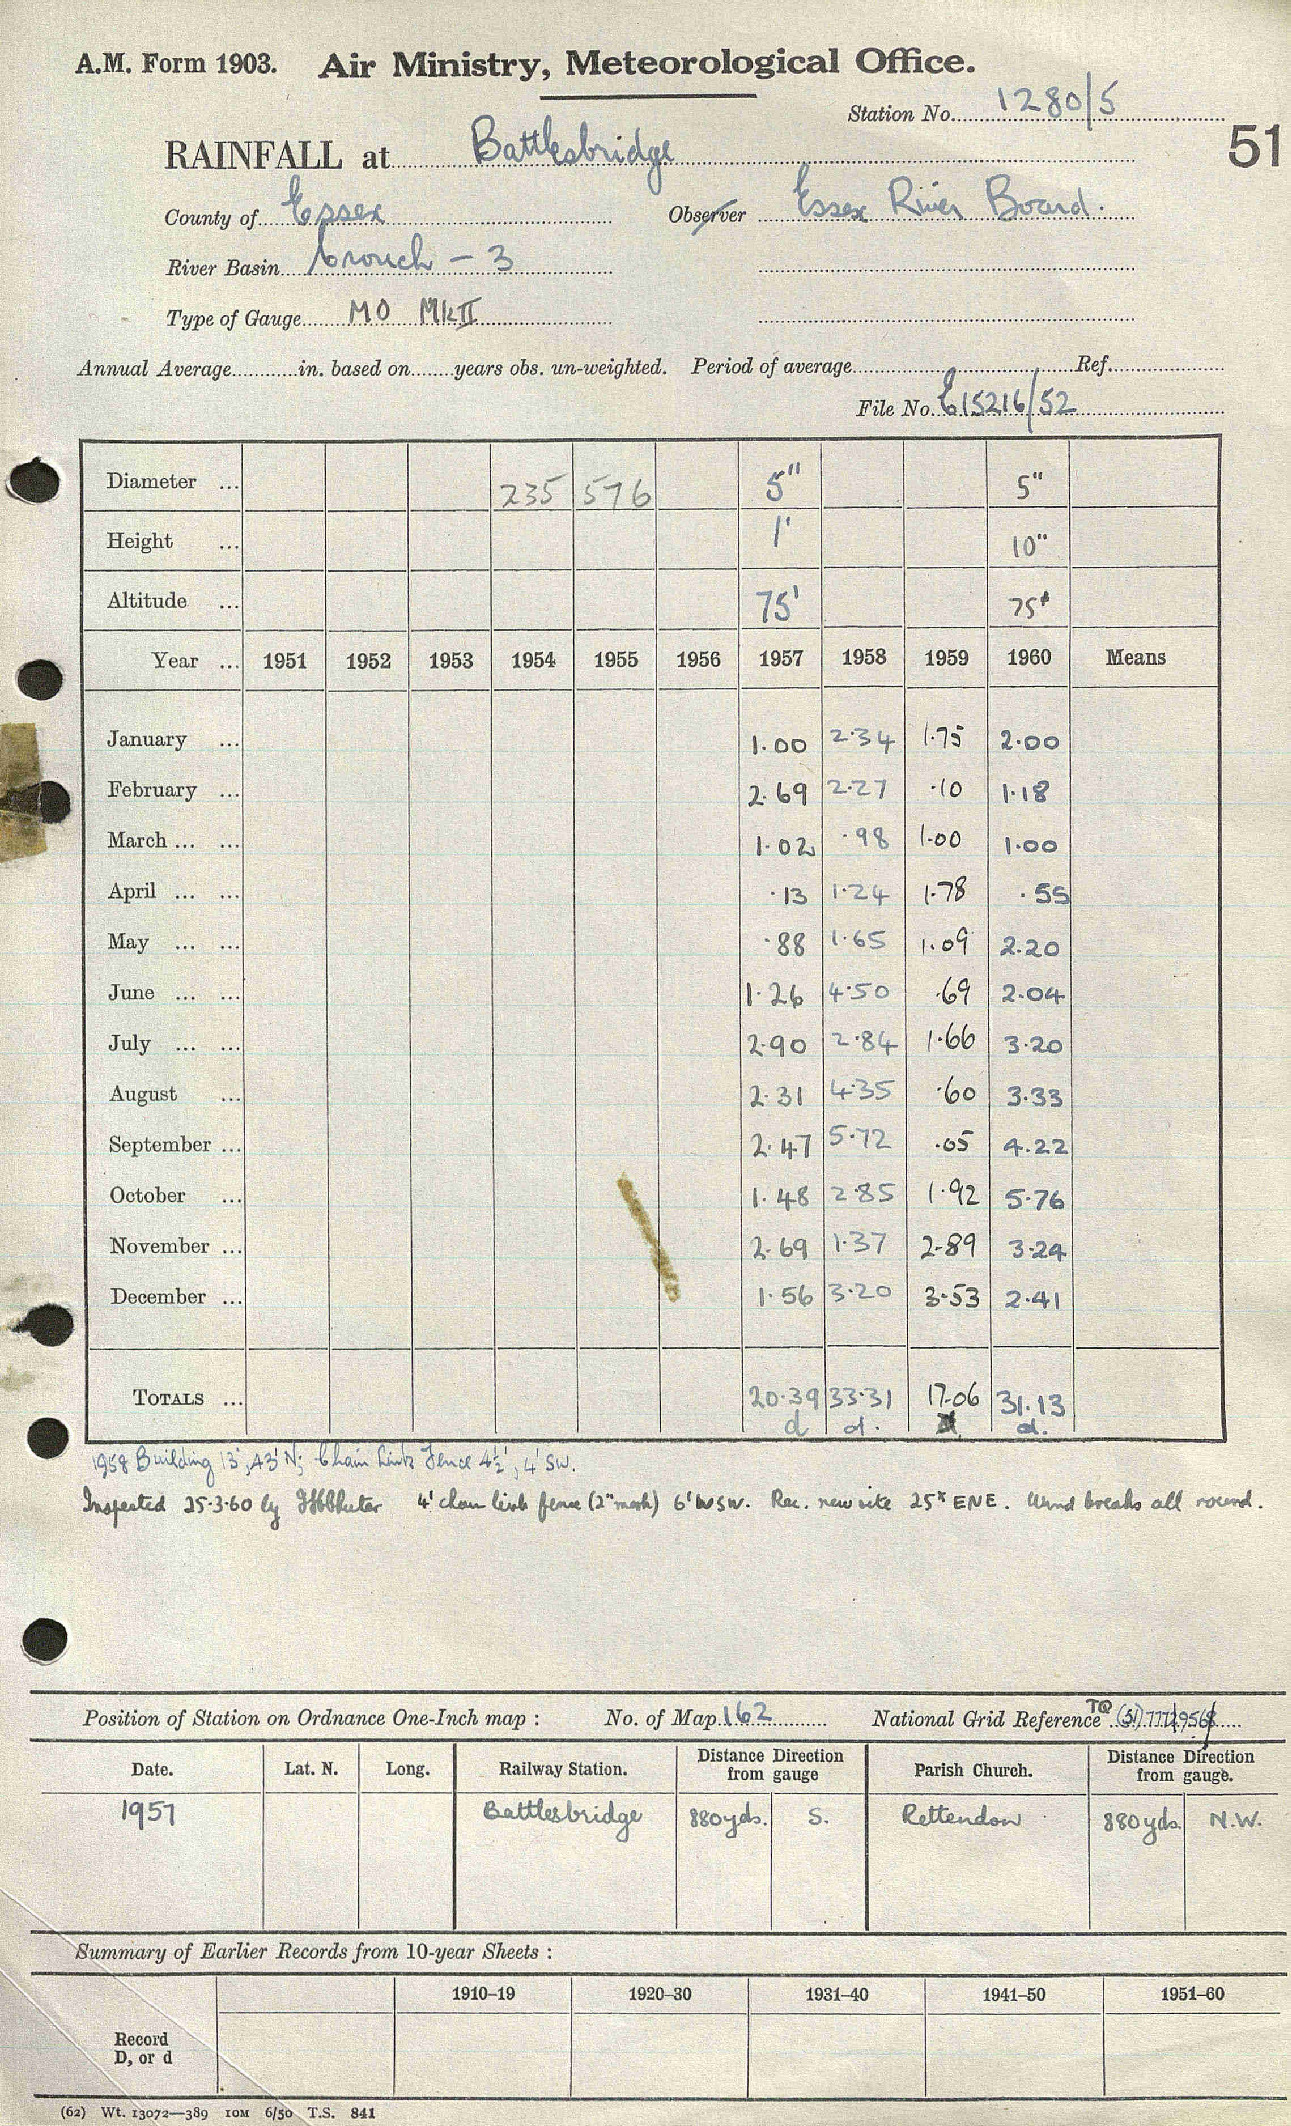 A.M. Form 1903. Air Ministry, Meteorological Office.
Station No. 1280/5
51
RAINFALL at Battlesbridge
County of Essex Observer Essex River Board.
River Basin Crouch - 3
Type of Gauge MO MkII
Annual Average............in. based on........years obs. un-weighted. Period of average............Ref.............
File No. E15216/52
Diameter ... 235 576 5" 5"
Height ... 1' 10"
Altitude ... 75' 75'
Year ... 1951 1952 1953 1954 1955 1956 1957 1958 1959 1960 Means
January ... 1.00 2.34 1.75 2.00
February ... 2.69 2.27 .10 1.18
March ... ... 1.02 .98 1.00 1.00
April ... ... .13 1.24 1.78 .55
May ... ... .88 1.65 1.09 2.20
June ... ... 1.26 4.50 .69 2.04
July ... ... 2.90 2.84 1.66 3.20
August ... 2.31 4.35 .60 3.33
September ... 2.47 5.72 .05 4.22
October ... 1.48 2.85 1.92 5.76
November ... 2.69 1.37 2.89 3.24
December ... 1.56 3.20 3.53 2.41
TOTALS ... 20.39 33.31 17.06 31.13
d d. d. d.
1958 Building 13', 43' N; Chain Link Fence 4½', 4' SW.
Inspected 25.3.60 by 4' chain link fence (2" mesh) 6' WSW. Rec. new site 25x ENE. Wind breaks all round.
Position of Station on Ordnance One-Inch map : No. of Map 162 National Grid Reference TQ (51)
Date. Lat. N. Long. Railway Station. Distance Direction from gauge Parish Church. Distance Direction from gauge.
1957 Battlesbridge 880yds. S. Rettendon 880yds. N.W.
Summary of Earlier Records from 10-year Sheets :
1910–19 1920–30 1931–40 1941–50 1951–60
Record
D, or d
(62) Wt. 13072—389 10M 6/50 T.S. 841